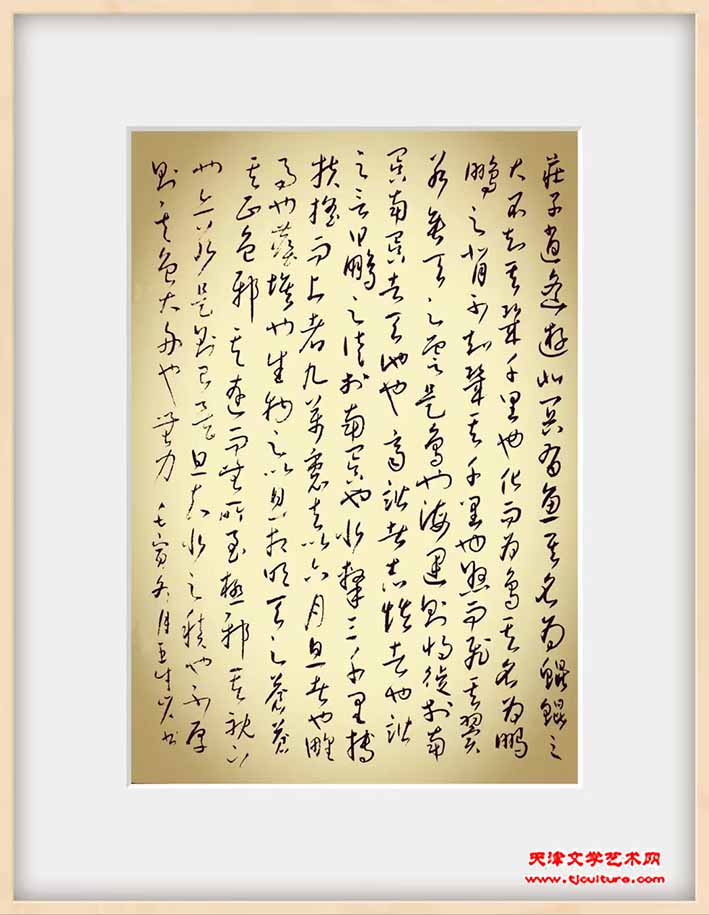 莊子逍遙遊北冥有魚其名為鯤鯤之
大不知其幾千里也化而為鳥其名為鵬
鵬之背不知幾其千里也怒而飛其翼
若垂天之雲是鳥也海運則將徙於南
冥南冥者天池也齊諧者志怪者也諧
之言曰鵬之徙於南冥也水擊三千里摶
扶搖而上者九萬里去以六月息者也野
馬也塵埃也生物之以息相吹天之蒼蒼
其正色邪其遠而無所至極邪其視下
也亦若是則已矣且夫水之積也不厚
則其負大舟也無力 壬寅冬月
天津文学艺术网
www.tjculture.com